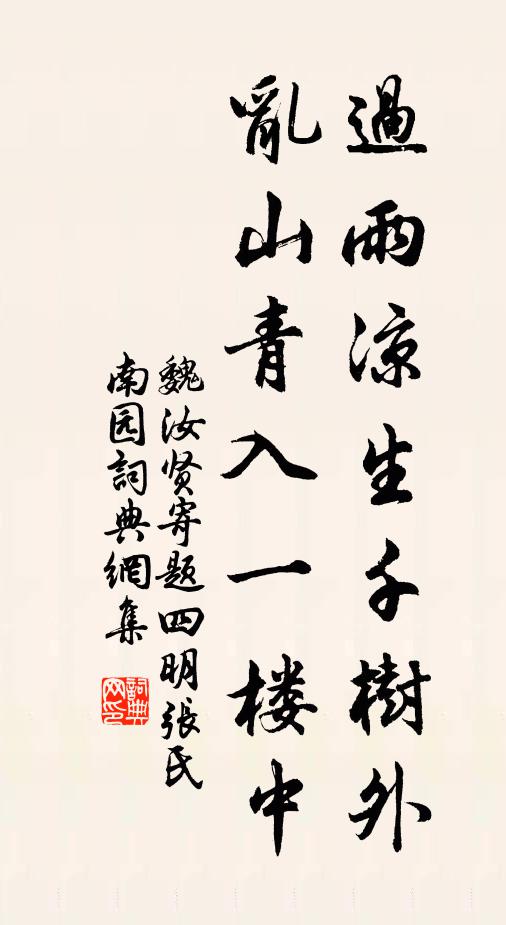 過雨凉生千樹外
亂山青入一楼中
魏汝贤寄题四明張氏
南园詞典網集
詞典网印